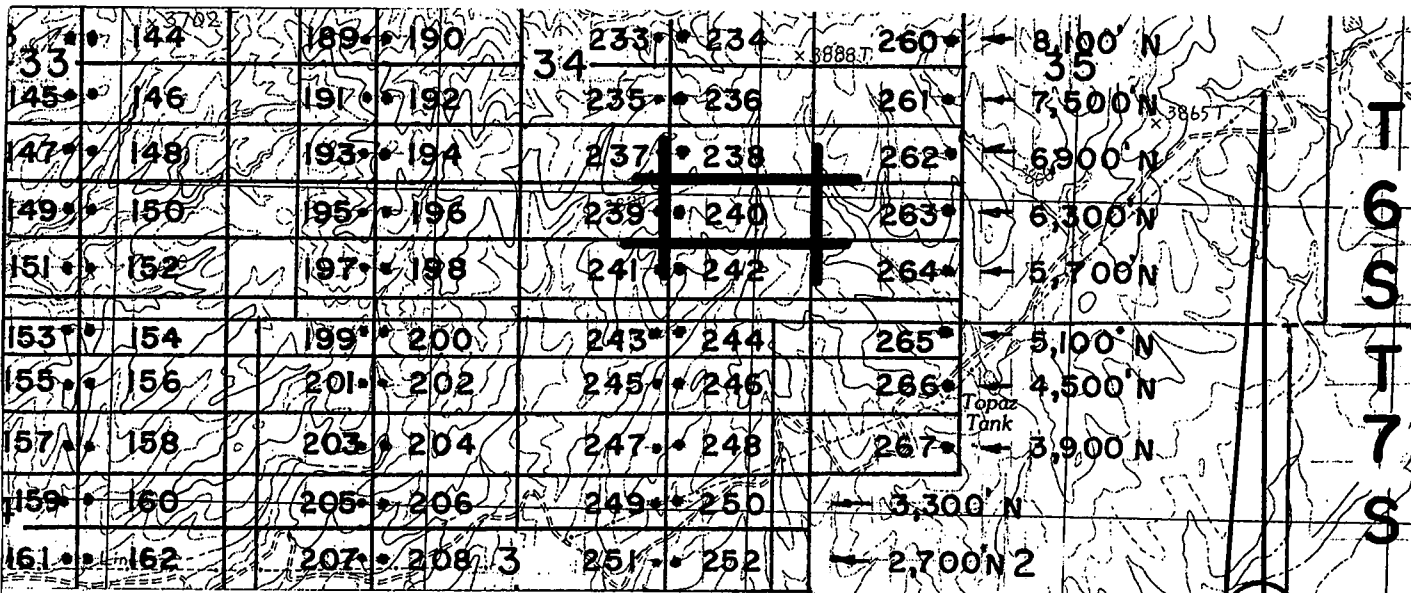 x 3702
144 189 190 233 234 260 8,100' N
33 34 x 3888T 35
145 146 191 192 235 236 261 7,500' N
x 3865T
T
147 148 193 194 237 238 262 6,900' N
149 150 195 196 239 240 263 6,300' N
6
151 152 197 198 241 242 264 5,700' N
S
153 154 199 200 243 244 265 5,100' N
155 156 201 202 245 246 266 4,500' N
T
Topaz
Tank
157 158 203 204 247 248 267 3,900' N
7
159 160 205 206 249 250 3,300' N
S
161 162 207 208 3 251 252 2,700' N 2